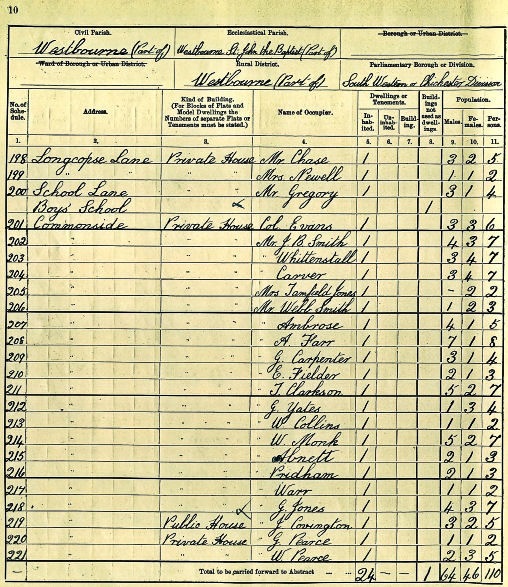 10
Civil Parish.
Ecclesiastical Parish.
Borough or Urban District.
Westbourne (Part of)
Westbourne St. John the Baptist (Part of)
Ward of Borough or Urban District.
Rural District.
Parliamentary Borough or Division.
Westbourne (Part of)
South Western or Chichester Division
No. of Schedule.
Address.
Kind of Building.
(For Blocks of Flats and Model Dwellings the Numbers of separate Flats or Tenements must be stated.)
Name of Occupier.
Dwellings or Tenements.
Inhabited.
Uninhabited.
Building.
Buildings not used as dwellings.
Population.
Males.
Females.
Persons.
1. 2. 3. 4. 5. 6. 7. 8. 9. 10. 11.
198 Longcopse Lane Private House Mr Chase 1 3 2 5
199 " " Mrs Newell 1 1 1 2
200 School Lane " Mr Gregory 1 3 1 4
Boys' School 1
201 Commonside Private House Col. Evans 1 3 3 6
202 " " Mr J. B. Smith 1 4 3 7
203 " " " Whittenstall 1 3 4 7
204 " " Carver 1 3 4 7
205 " " Mrs Tamfield Jones 1 - 2 2
206 " " Mr Webb Smith 1 1 2 3
207 " " Ambrose 1 4 1 5
208 " " " A. Farr 1 7 1 8
209 " " " G. Carpenter 1 3 1 4
210 " " " E. Fielder 1 2 1 3
211 " " " T. Clarkson 1 5 2 7
212 " " " G. Yates 1 1 3 4
213 " " " W. Collins 1 1 1 2
214 " " " W. Monk 1 5 2 7
215 " " " Abnett 1 2 1 3
216 " " " Pridham 1 2 1 3
217 " " " Warr 1 1 1 2
218 " " " G. Jones 1 4 3 7
219 " Public House " Covington 1 3 2 5
220 " Private House " G. Pearce 1 1 1 2
221 " " " W. Pearce 1 2 3 5
Total to be carried forward to Abstract 24 - - 1 64 46 110